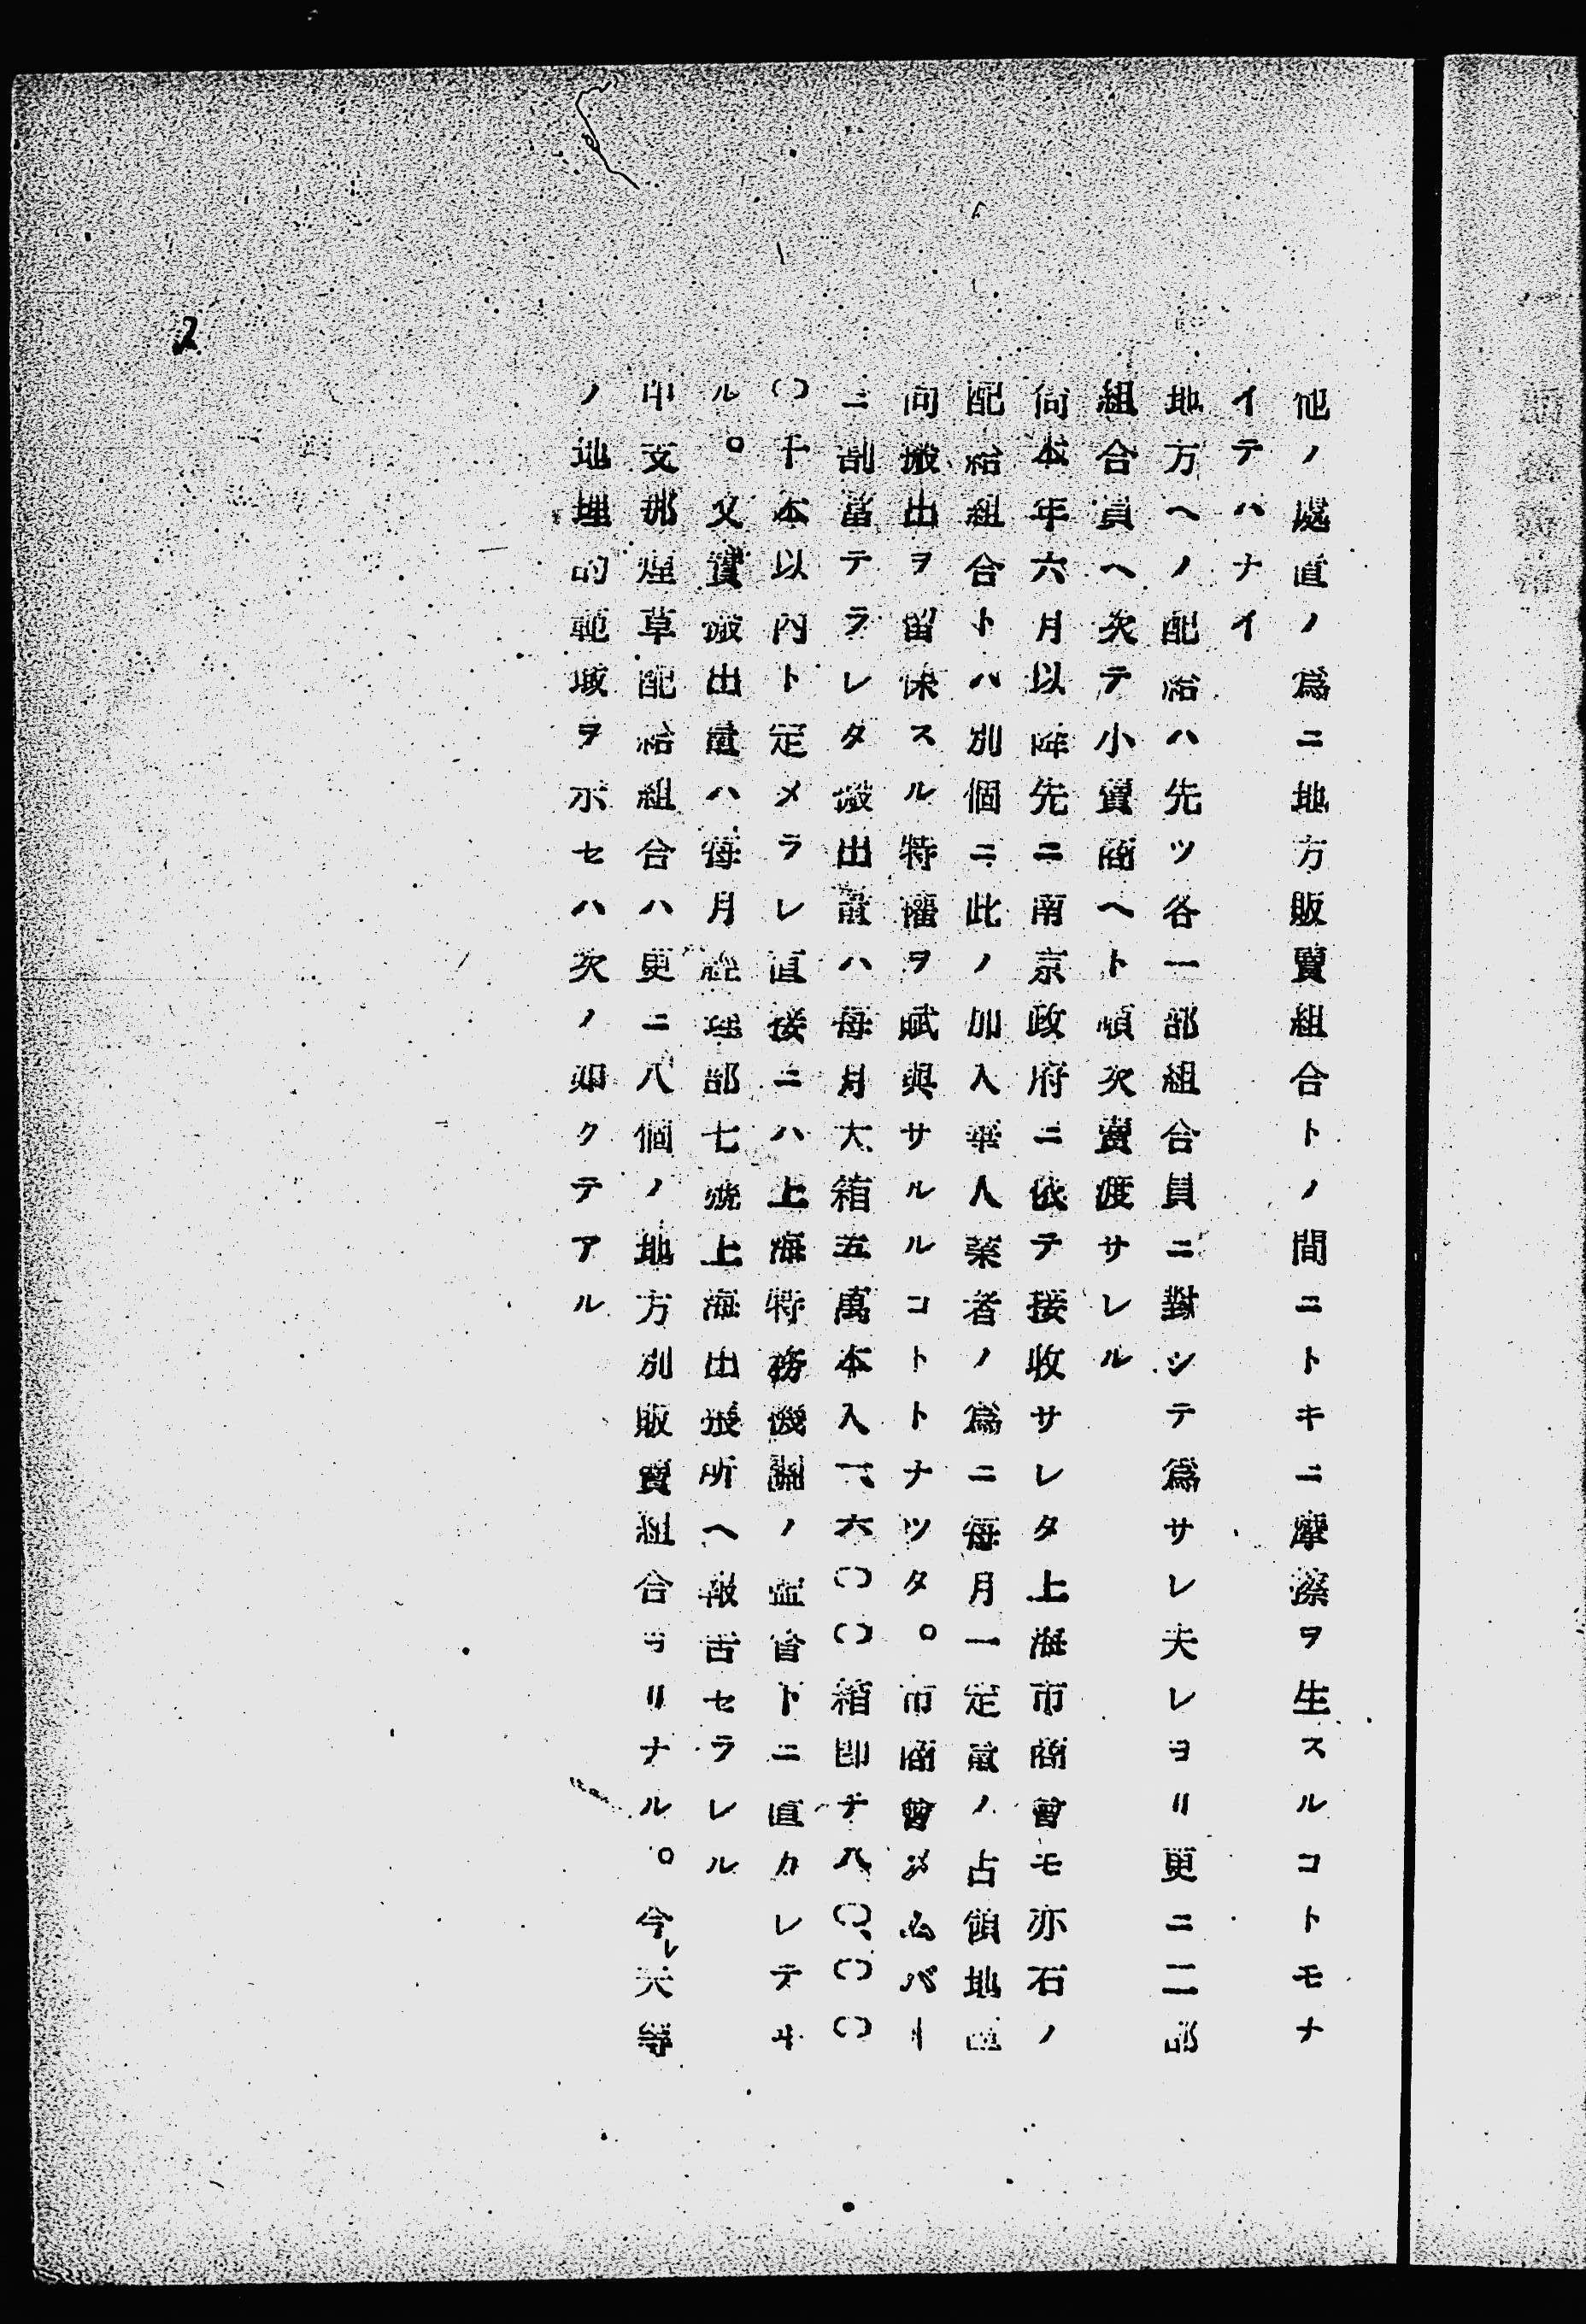 他ノ處直ノ爲ニ地方販賣組合トノ間ニトキニ摩擦ヲ生スルコトモナ
イテハナイ
地方ヘノ配給ハ先ツ各一部組合員ニ對シテ爲サレ夫レヨリ更ニ二部
組合員ヘ次テ小賣商ヘト順次賣渡サレル
尙本年六月以降先ニ南京政府ニ依テ接收サレタ上海市商會モ亦右ノ
配給組合トハ別個ニ此ノ加入華人業者ノ爲ニ每月一定量ノ占領地區
向搬出ヲ留保スル特權ヲ賦與サルルコトトナツタ。市商會メムバー
ニ割當テラレタ搬出量ハ每月大箱五萬本入一、六〇〇箱卽チ八〇、〇〇
〇千本以內ト定メラレ直接ニハ上海特務機關ノ監督トニ直カレテヰ
ル。又實搬出量ハ每月經理部七號上海出張所ヘ報吿セラレル
中支那煙草配給組合ハ更ニ八個ノ地方別販賣組合ヨリナル。今夫レ等
ノ地理的範域ヲ示セハ次ノ如クテアル
2